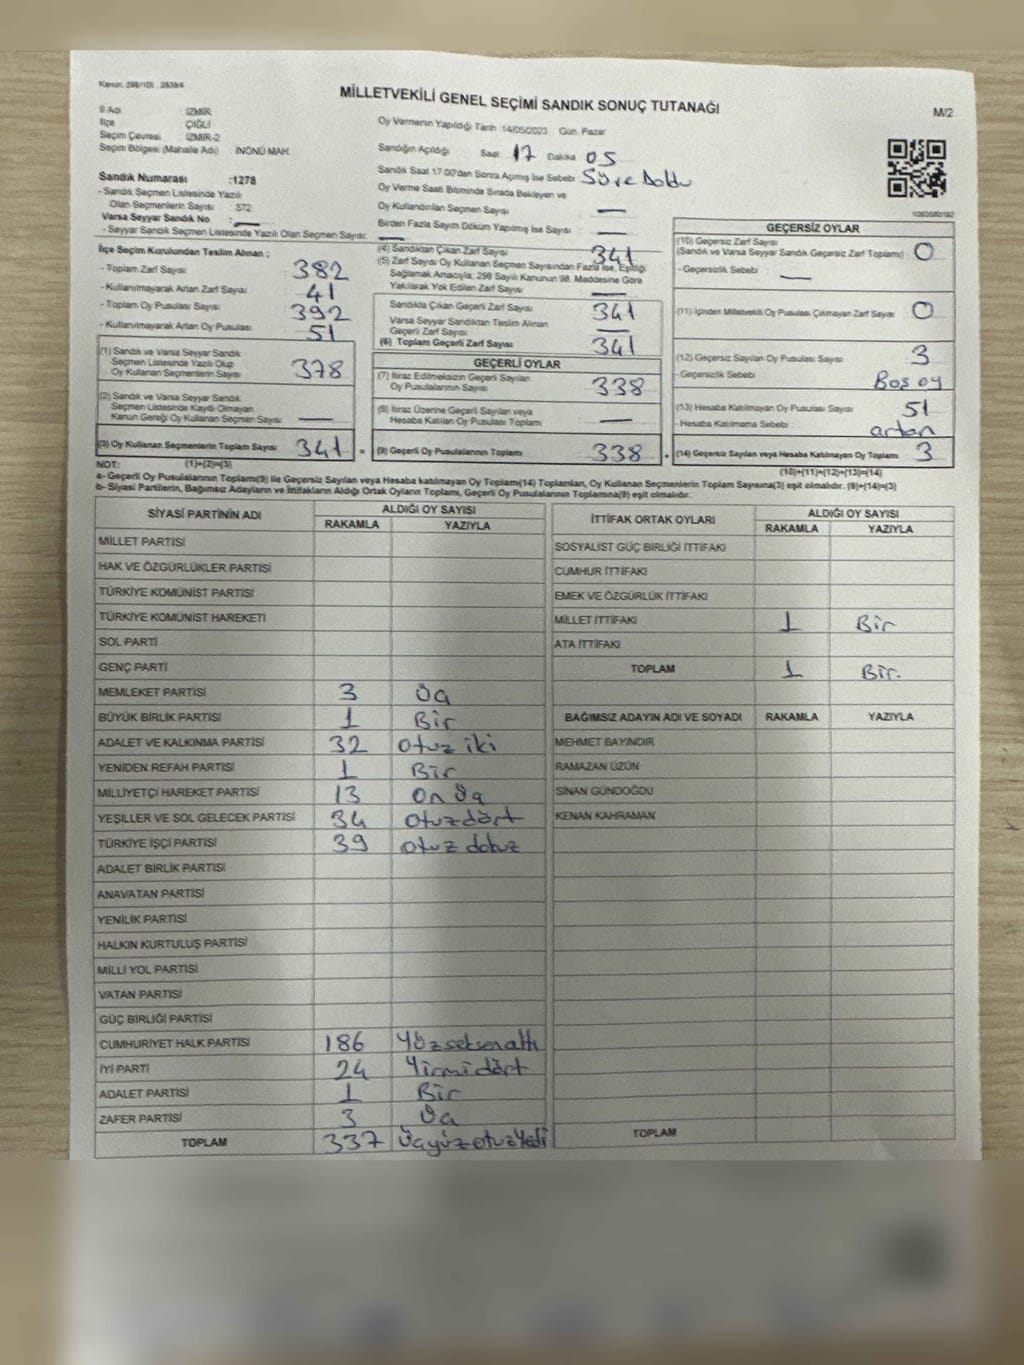 Kanun: 298/105 , 2839/4
MİLLETVEKİLİ GENEL SEÇİMİ SANDIK SONUÇ TUTANAĞI
M/2
İl Adı : İZMİR
İlçe : ÇİĞLİ
Seçim Çevresi : İZMİR-2
Seçim Bölgesi (Mahalle Adı) : İNÖNÜ MAH.
Sandık Numarası :1278
- Sandık Seçmen Listesinde Yazılı
Olan Seçmenlerin Sayısı : 372
Varsa Seyyar Sandık No : —
- Seyyar Sandık Seçmen Listesinde Yazılı Olan Seçmen Sayısı: —
Oy Vermenin Yapıldığı Tarih :14/05/2023 Gün: Pazar
Sandığın Açıldığı Saat: 17 Dakika: 05
Sandık Saat 17.00'den Sonra Açılmış İse Sebebi: Süre Doldu
Oy Verme Saati Bitiminde Sırada Bekleyen ve
Oy Kullandırılan Seçmen Sayısı : —
Birden Fazla Sayım Döküm Yapılmış İse Sayısı : —
İlçe Seçim Kurulundan Teslim Alınan ;
- Toplam Zarf Sayısı : 382
- Kullanılmayarak Artan Zarf Sayısı : 41
- Toplam Oy Pusulası Sayısı : 392
- Kullanılmayarak Artan Oy Pusulası : 51
(1) Sandık ve Varsa Seyyar Sandık
Seçmen Listesinde Yazılı Olup
Oy Kullanan Seçmenlerin Sayısı : 378
(2) Sandık ve Varsa Seyyar Sandık
Seçmen Listesinde Kayıtlı Olmayan
Kanun Gereği Oy Kullanan Seçmen Sayısı : —
(3) Oy Kullanan Seçmenlerin Toplam Sayısı : 341
(4) Sandıktan Çıkan Zarf Sayısı : 341
(5) Zarf Sayısı Oy Kullanan Seçmen Sayısından Fazla ise, Eşitliği
Sağlamak Amacıyla; 298 Sayılı Kanunun 98. Maddesine Göre
Yakılarak Yok Edilen Zarf Sayısı : —
Sandıkta Çıkan Geçerli Zarf Sayısı : 341
Varsa Seyyar Sandıktan Teslim Alınan
Geçerli Zarf Sayısı : —
(6) Toplam Geçerli Zarf Sayısı : 341
GEÇERLİ OYLAR
(7) İtiraz Edilmeksizin Geçerli Sayılan
Oy Pusulalarının Sayısı : 338
(8) İtiraz Üzerine Geçerli Sayılan veya
Hesaba Katılan Oy Pusulası Toplamı : —
= (9) Geçerli Oy Pusulalarının Toplamı : 338
GEÇERSİZ OYLAR
(10) Geçersiz Zarf Sayısı
(Sandık ve Varsa Seyyar Sandık Geçersiz Zarf Toplamı) : 0
- Geçersizlik Sebebi : —
(11) İçinden Milletvekili Oy Pusulası Çıkmayan Zarf Sayısı : 0
(12) Geçersiz Sayılan Oy Pusulası Sayısı : 3
- Geçersizlik Sebebi : Boş oy
(13) Hesaba Katılmayan Oy Pusulası Sayısı : 51
- Hesaba Katılmama Sebebi : artan
+ (14) Geçersiz Sayılan veya Hesaba Katılmayan Oy Toplamı : 3
NOT: (1)+(2)=(3)
(10)+(11)+(12)+(13)=(14)
a- Geçerli Oy Pusulalarının Toplamı(9) ile Geçersiz Sayılan veya Hesaba katılmayan Oy Toplamı(14) Toplamları, Oy Kullanan Seçmenlerin Toplam Sayısına(3) eşit olmalıdır. (9)+(14)=(3)
b- Siyasi Partilerin, Bağımsız Adayların ve İttifakların Aldığı Ortak Oyların Toplamı, Geçerli Oy Pusulalarının Toplamına(9) eşit olmalıdır.
SİYASİ PARTİNİN ADI ALDIĞI OY SAYISI
RAKAMLA YAZIYLA
MİLLET PARTİSİ
HAK VE ÖZGÜRLÜKLER PARTİSİ
TÜRKİYE KOMÜNİST PARTİSİ
TÜRKİYE KOMÜNİST HAREKETİ
SOL PARTİ
GENÇ PARTİ
MEMLEKET PARTİSİ 3 Üç
BÜYÜK BİRLİK PARTİSİ 1 Bir
ADALET VE KALKINMA PARTİSİ 32 otuz iki
YENİDEN REFAH PARTİSİ 1 Bir
MİLLİYETÇİ HAREKET PARTİSİ 13 On Üç
YEŞİLLER VE SOL GELECEK PARTİSİ 34 otuzdört
TÜRKİYE İŞÇİ PARTİSİ 39 otuz dokuz
ADALET BİRLİK PARTİSİ
ANAVATAN PARTİSİ
YENİLİK PARTİSİ
HALKIN KURTULUŞ PARTİSİ
MİLLİ YOL PARTİSİ
VATAN PARTİSİ
GÜÇ BİRLİĞİ PARTİSİ
CUMHURİYET HALK PARTİSİ 186 Yüzseksenaltı
İYİ PARTİ 24 Yirmidört
ADALET PARTİSİ 1 Bir
ZAFER PARTİSİ 3 Üç
TOPLAM 337 Üçyüzotuzyedi
İTTİFAK ORTAK OYLARI ALDIĞI OY SAYISI
RAKAMLA YAZIYLA
SOSYALİST GÜÇ BİRLİĞİ İTTİFAKI
CUMHUR İTTİFAKI
EMEK VE ÖZGÜRLÜK İTTİFAKI
MİLLET İTTİFAKI 1 Bir
ATA İTTİFAKI
TOPLAM 1 Bir.
BAĞIMSIZ ADAYIN ADI VE SOYADI RAKAMLA YAZIYLA
MEHMET BAYINDIR
RAMAZAN ÜZÜN
SİNAN GÜNDOĞDU
KENAN KAHRAMAN
TOPLAM